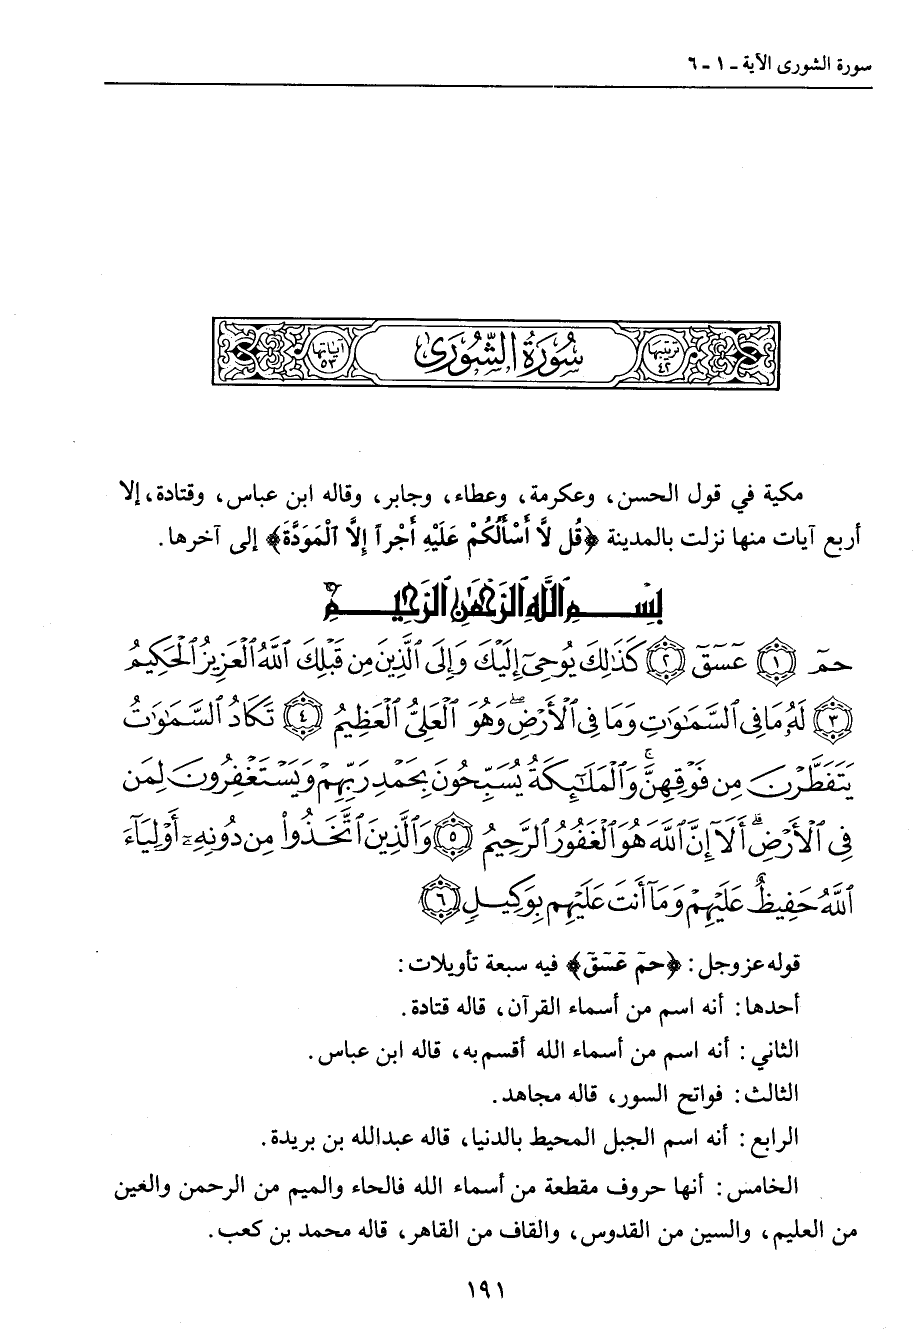 سورة الشورى الآية ـ ١ - ٦
ترتيبها ٤٢
سُورَةُ الشُّورَى
آياتها ٥٣
مكية في قول الحسن، وعكرمة، وعطاء، وجابر، وقاله ابن عباس، وقتادة، إلا
أربع آيات منها نزلت بالمدينة ﴿قُل لَّا أَسْأَلُكُمْ عَلَيْهِ أَجْراً إِلَّا الْمَوَدَّةَ﴾ إلى آخرها.
بِسْمِ ٱللَّهِ ٱلرَّحْمَٰنِ ٱلرَّحِيمِ
حمٓ ﴿١﴾ عٓسٓقٓ ﴿٢﴾ كَذَٰلِكَ يُوحِىٓ إِلَيْكَ وَإِلَى ٱلَّذِينَ مِن قَبْلِكَ ٱللَّهُ ٱلْعَزِيزُ ٱلْحَكِيمُ
﴿٣﴾ لَهُۥ مَا فِى ٱلسَّمَٰوَٰتِ وَمَا فِى ٱلْأَرْضِۖ وَهُوَ ٱلْعَلِىُّ ٱلْعَظِيمُ ﴿٤﴾ تَكَادُ ٱلسَّمَٰوَٰتُ
يَتَفَطَّرْنَ مِن فَوْقِهِنَّۚ وَٱلْمَلَٰٓئِكَةُ يُسَبِّحُونَ بِحَمْدِ رَبِّهِمْ وَيَسْتَغْفِرُونَ لِمَن
فِى ٱلْأَرْضِۗ أَلَآ إِنَّ ٱللَّهَ هُوَ ٱلْغَفُورُ ٱلرَّحِيمُ ﴿٥﴾ وَٱلَّذِينَ ٱتَّخَذُوا۟ مِن دُونِهِۦٓ أَوْلِيَآءَ
ٱللَّهُ حَفِيظٌ عَلَيْهِمْ وَمَآ أَنتَ عَلَيْهِم بِوَكِيلٍ ﴿٦﴾
قوله عز وجل: ﴿حمٓ عٓسٓقٓ﴾ فيه سبعة تأويلات:
أحدها: أنه اسم من أسماء القرآن، قاله قتادة.
الثاني: أنه اسم من أسماء الله أقسم به، قاله ابن عباس.
الثالث: فواتح السور، قاله مجاهد.
الرابع: أنه اسم الجبل المحيط بالدنيا، قاله عبدالله بن بريدة.
الخامس: أنها حروف مقطعة من أسماء الله فالحاء والميم من الرحمن والغين
من العليم، والسين من القدوس، والقاف من القاهر، قاله محمد بن كعب.
١٩١